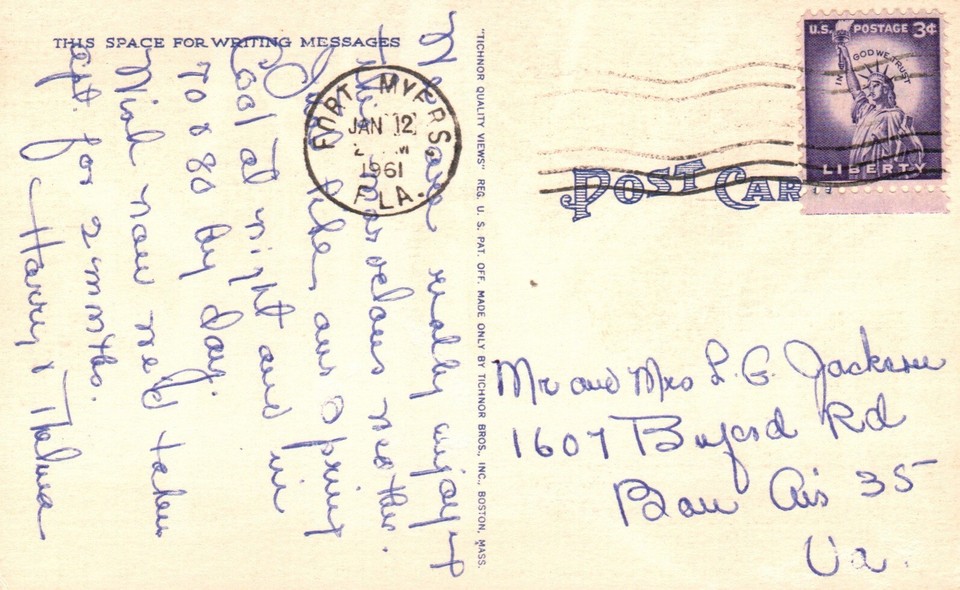 THIS SPACE FOR WRITING MESSAGES
We are really enjoying
this marvelous weather.
like our Spring
Cool at night and in
70 & 80 by day.
Wish now we'd taken
apt. for 2 months.
Harry & Thelma
FORT MYERS
JAN 12
1961
FLA.
"TICHNOR QUALITY VIEWS" REG. U. S. PAT. OFF. MADE ONLY BY TICHNOR BROS., INC., BOSTON, MASS.
U.S. POSTAGE 3¢
IN GOD WE TRUST
LIBERTY
POST CARD
Mr and Mrs L. G. Jackson
1607 Buford Rd
Bon Air 35
Va.